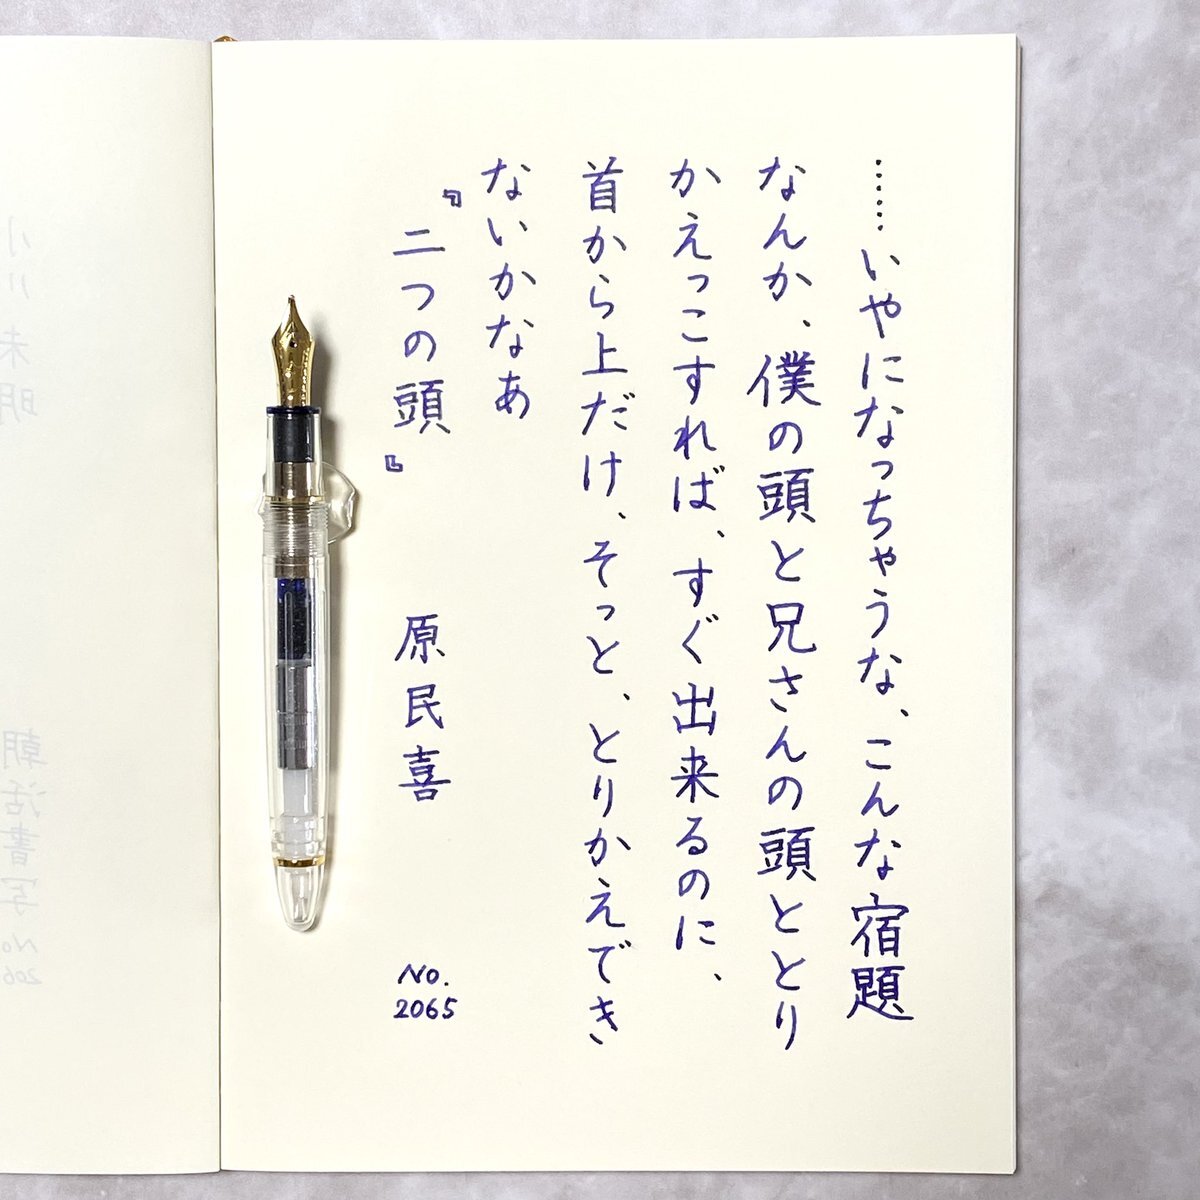 ……いやになっちゃうな、こんな宿題
なんか、僕の頭と兄さんの頭ととり
かえっこすれば、すぐ出来るのに、
首から上だけ、そっと、とりかえでき
ないかなあ
『二つの頭』 原民喜 No.
2065
小川未明
朝活書写 No.
206